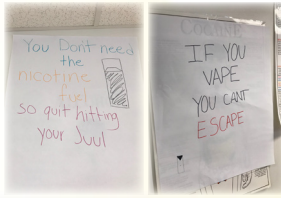 You Don't need
the
nicotine
fuel
so quit hitting
your Juul
IF YOU
VAPE
YOU CANT
ESCAPE